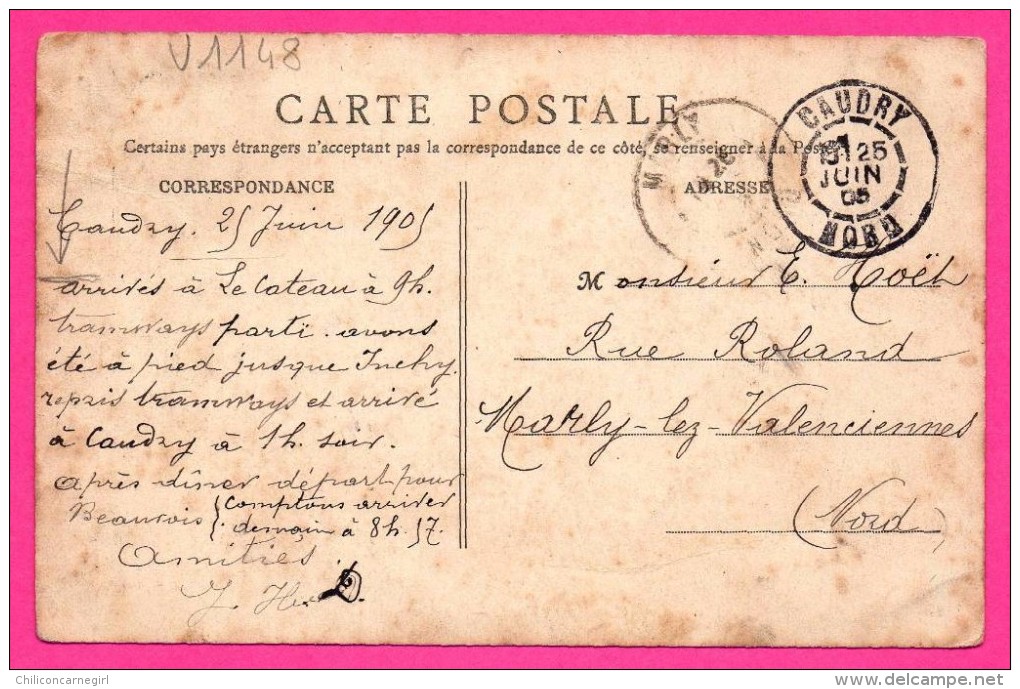 V1148
CARTE POSTALE
Certains pays étrangers n'acceptant pas la correspondance de ce côté, se renseigner à la Poste
CORRESPONDANCE
ADRESSE
CAUDRY
25
JUIN
05
NORD
Caudry. 25 Juin 1905
arrivés à Le Cateau à 9h.
tramways parti. avons
été à pied jusque Inchy.
repris tramways et arrivé
à Caudry à 1h. soir.
après dîner départ pour
Beauvois (comptons arriver
demain à 8h.57.
Amitiés
Monsieur E. Noël
Rue Roland
Marly-lez-Valenciennes
(Nord)
Chiliconcarnegirl
www.delcampe.net